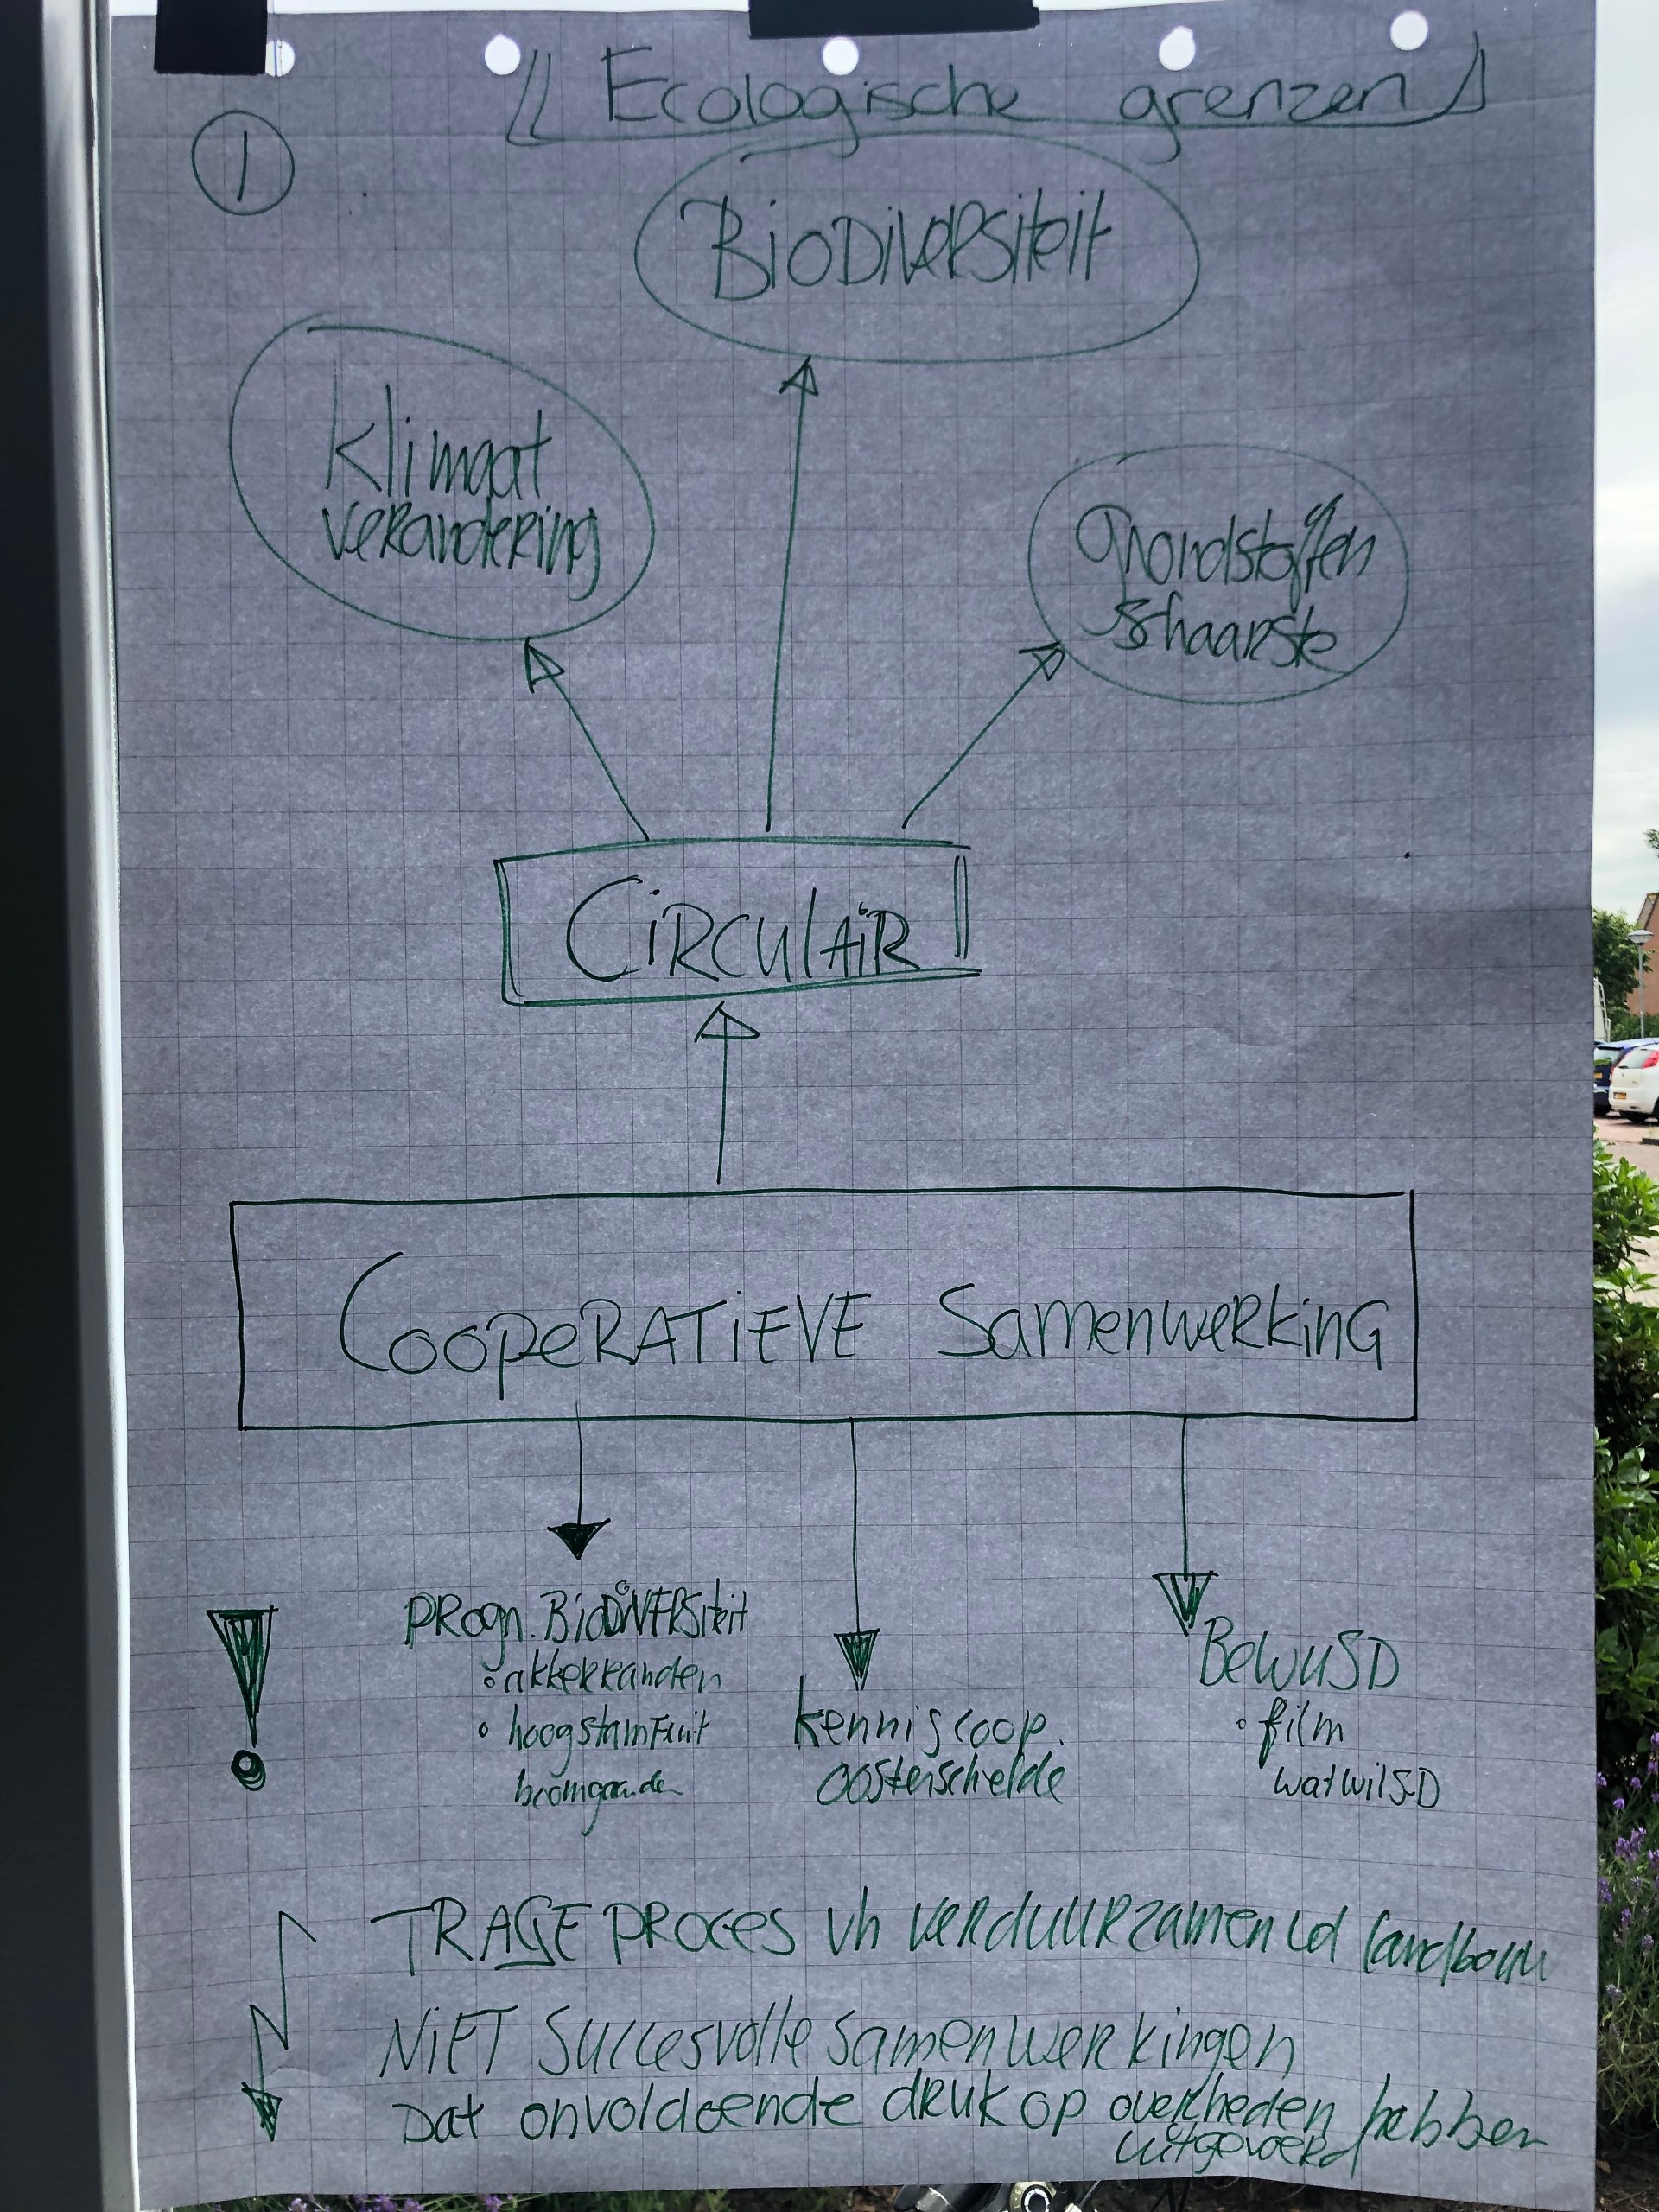 Ecologische grenzen
1
BIODIVERSITEIT
Klimaat
verandering
Grondstoffen
schaarste
CIRCULAIR
COOPERATIEVE SamenwerkinG
PROgn. BIODIVERSITEIT
• akkerranden
• hoogstamfruit
boomgaarden
kenniscoop.
oosterschelde
BewUSD
• film
watwilSD
TRAGE PROCES vh verduurzamen ld landbouw
NIET Succesvolle samenwerkingen
Dat onvoldoende druk op overheden hebben
uitgevoerd